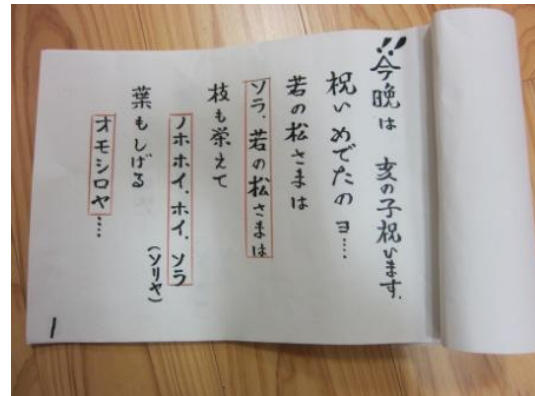 !!今晩は 亥の子祝います.
祝い めでたの ヨ….
若の松さまは
ソラ.若の松さまは
枝も栄えて
ノホホイ.ホイ.ソラ
(ソリヤ)
葉もしげる
オモシロヤ….
1